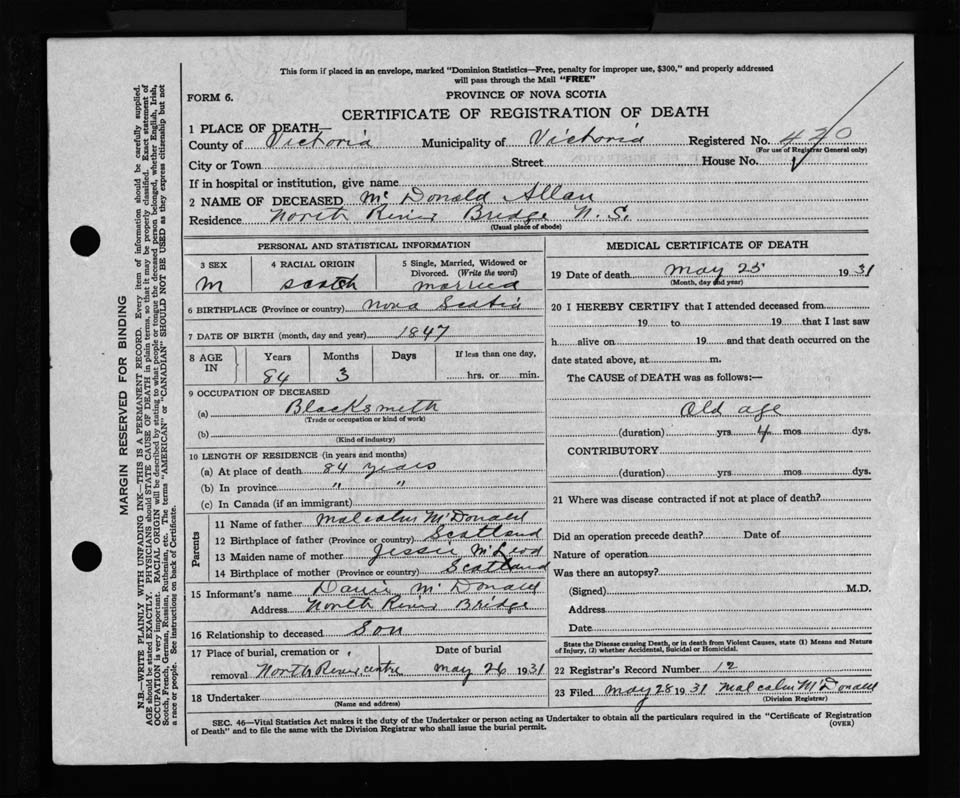 This form if placed in an envelope, marked "Dominion Statistics—Free, penalty for improper use, $300," and properly addressed
will pass through the Mail "FREE"
FORM 6.
PROVINCE OF NOVA SCOTIA
CERTIFICATE OF REGISTRATION OF DEATH
1 PLACE OF DEATH
County of Victoria Municipality of Victoria Registered No. 420
(For use of Registrar General only)
City or Town Street House No.
If in hospital or institution, give name
2 NAME OF DECEASED McDonald Allan
Residence North River Bridge N.S.
(Usual place of abode)
PERSONAL AND STATISTICAL INFORMATION
3 SEX 4 RACIAL ORIGIN 5 Single, Married, Widowed or
Divorced. (Write the word)
M scotch married
6 BIRTHPLACE (Province or country) Nova Scotia
7 DATE OF BIRTH (month, day and year) 1847
8 AGE IN Years Months Days If less than one day,
84 3 hrs. or min.
9 OCCUPATION OF DECEASED
(a) Blacksmith
(Trade or occupation or kind of work)
(b)
(Kind of industry)
10 LENGTH OF RESIDENCE (in years and months)
(a) At place of death 84 years
(b) In province " "
(c) In Canada (if an immigrant)
Parents
11 Name of father Malcolm McDonald
12 Birthplace of father (Province or country) Scotland
13 Maiden name of mother Jessie McLeod
14 Birthplace of mother (Province or country) Scotland
15 Informant's name McDonald
Address North River Bridge
16 Relationship to deceased Son
17 Place of burial, cremation or Date of burial
removal North River centre May 26 1931
18 Undertaker
(Name and address)
MEDICAL CERTIFICATE OF DEATH
19 Date of death May 25 1931
(Month, day and year)
20 I HEREBY CERTIFY that I attended deceased from
19 to 19 that I last saw
h alive on 19 and that death occurred on the
date stated above, at m.
The CAUSE of DEATH was as follows:—
Old age
(duration) yrs 4 mos dys.
CONTRIBUTORY
(duration) yrs mos dys.
21 Where was disease contracted if not at place of death?
Did an operation precede death? Date of
Nature of operation
Was there an autopsy?
(Signed) M.D.
Address
Date
State the Disease causing Death, or in death from Violent Causes, state (1) Means and Nature
of Injury, (2) whether Accidental, Suicidal or Homicidal.
22 Registrar's Record Number 12
23 Filed May 28 1931 Malcolm McDonald
(Division Registrar)
SEC. 46—Vital Statistics Act makes it the duty of the Undertaker or person acting as Undertaker to obtain all the particulars required in the "Certificate of Registration
of Death" and to file the same with the Division Registrar who shall issue the burial permit.
(OVER)
MARGIN RESERVED FOR BINDING
N.B.—WRITE PLAINLY WITH UNFADING INK—THIS IS A PERMANENT RECORD. Every item of information should be carefully supplied.
AGE should be stated EXACTLY. PHYSICIANS should STATE CAUSE OF DEATH in plain terms, so that it may be properly classified. Exact statement of
OCCUPATION is very important. RACIAL ORIGIN will be described by stating to what people or tongue the deceased person belonged, whether English, Irish,
Scotch, French, German, Russian, Ruthenian, etc. The terms "AMERICAN" or "CANADIAN" SHOULD NOT BE USED as they express citizenship but not
a race or people. See instructions on back of Certificate.